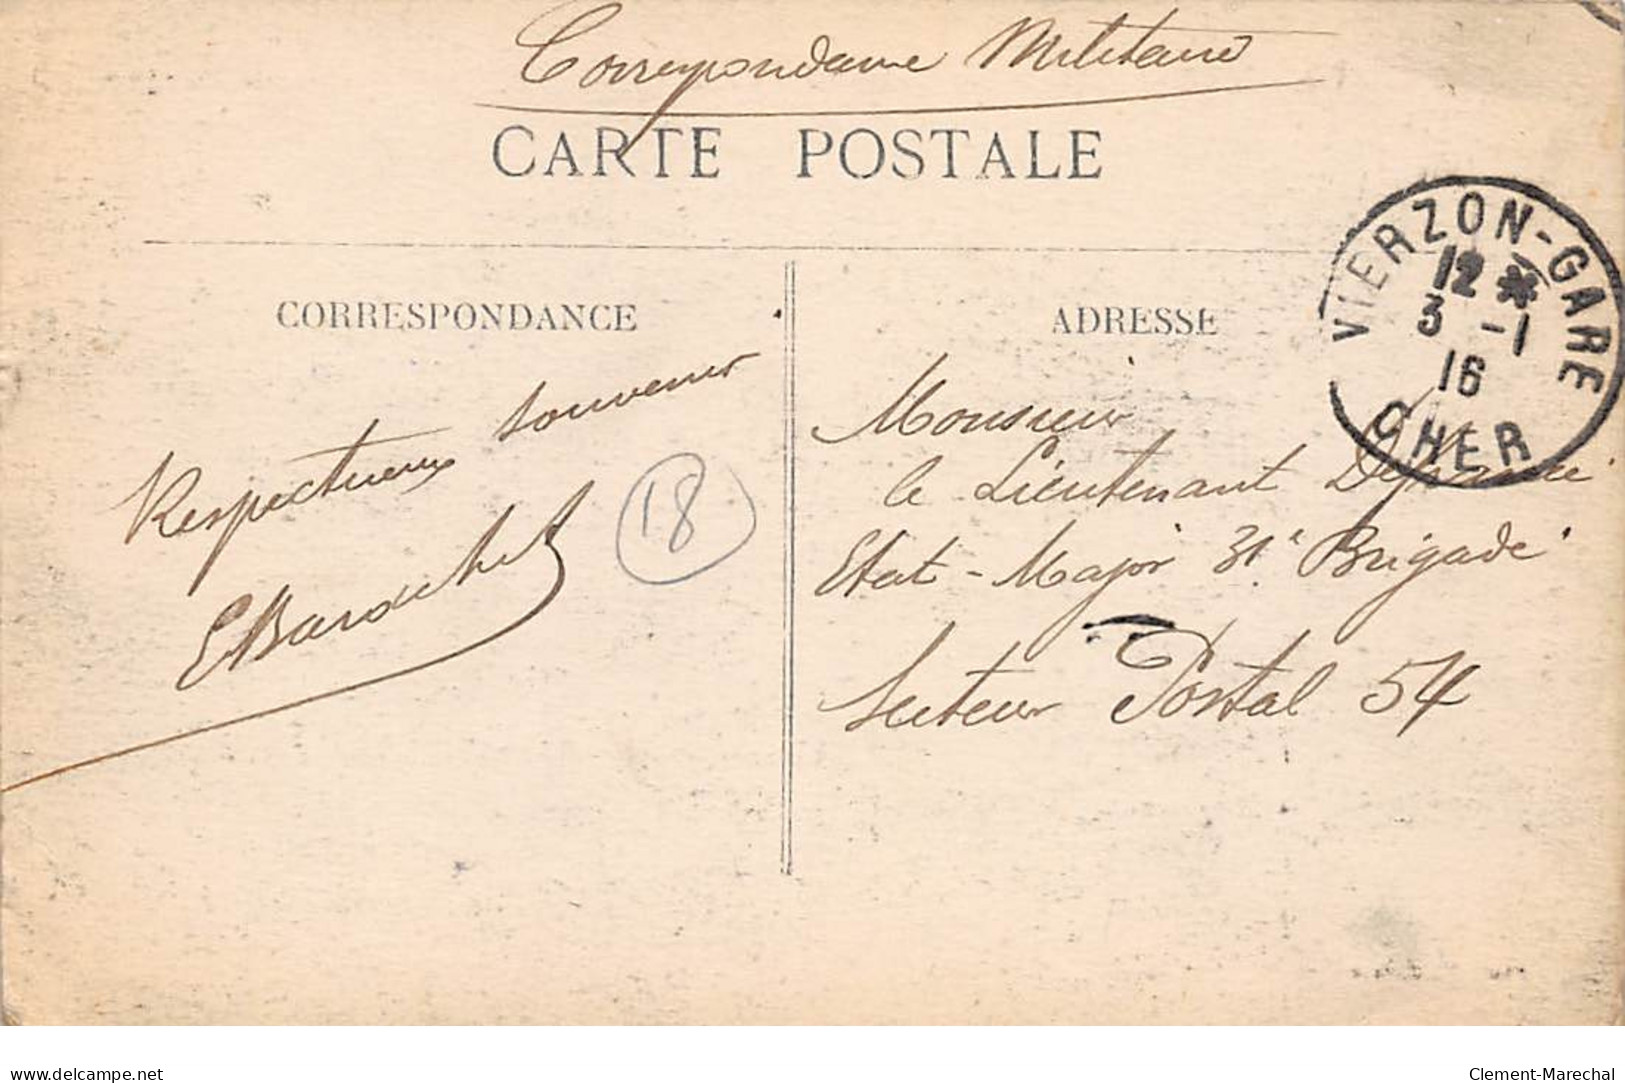 Correspondance Militaire
CARTE POSTALE
VIERZON-GARE
12 *
3 -1
16
CHER
CORRESPONDANCE
Respectueux souvenir
18
ADRESSE
Monsieur
le Lieutenant
Etat-Major 31e Brigade
Secteur Postal 54
delcampe.net
Clement-Marechal